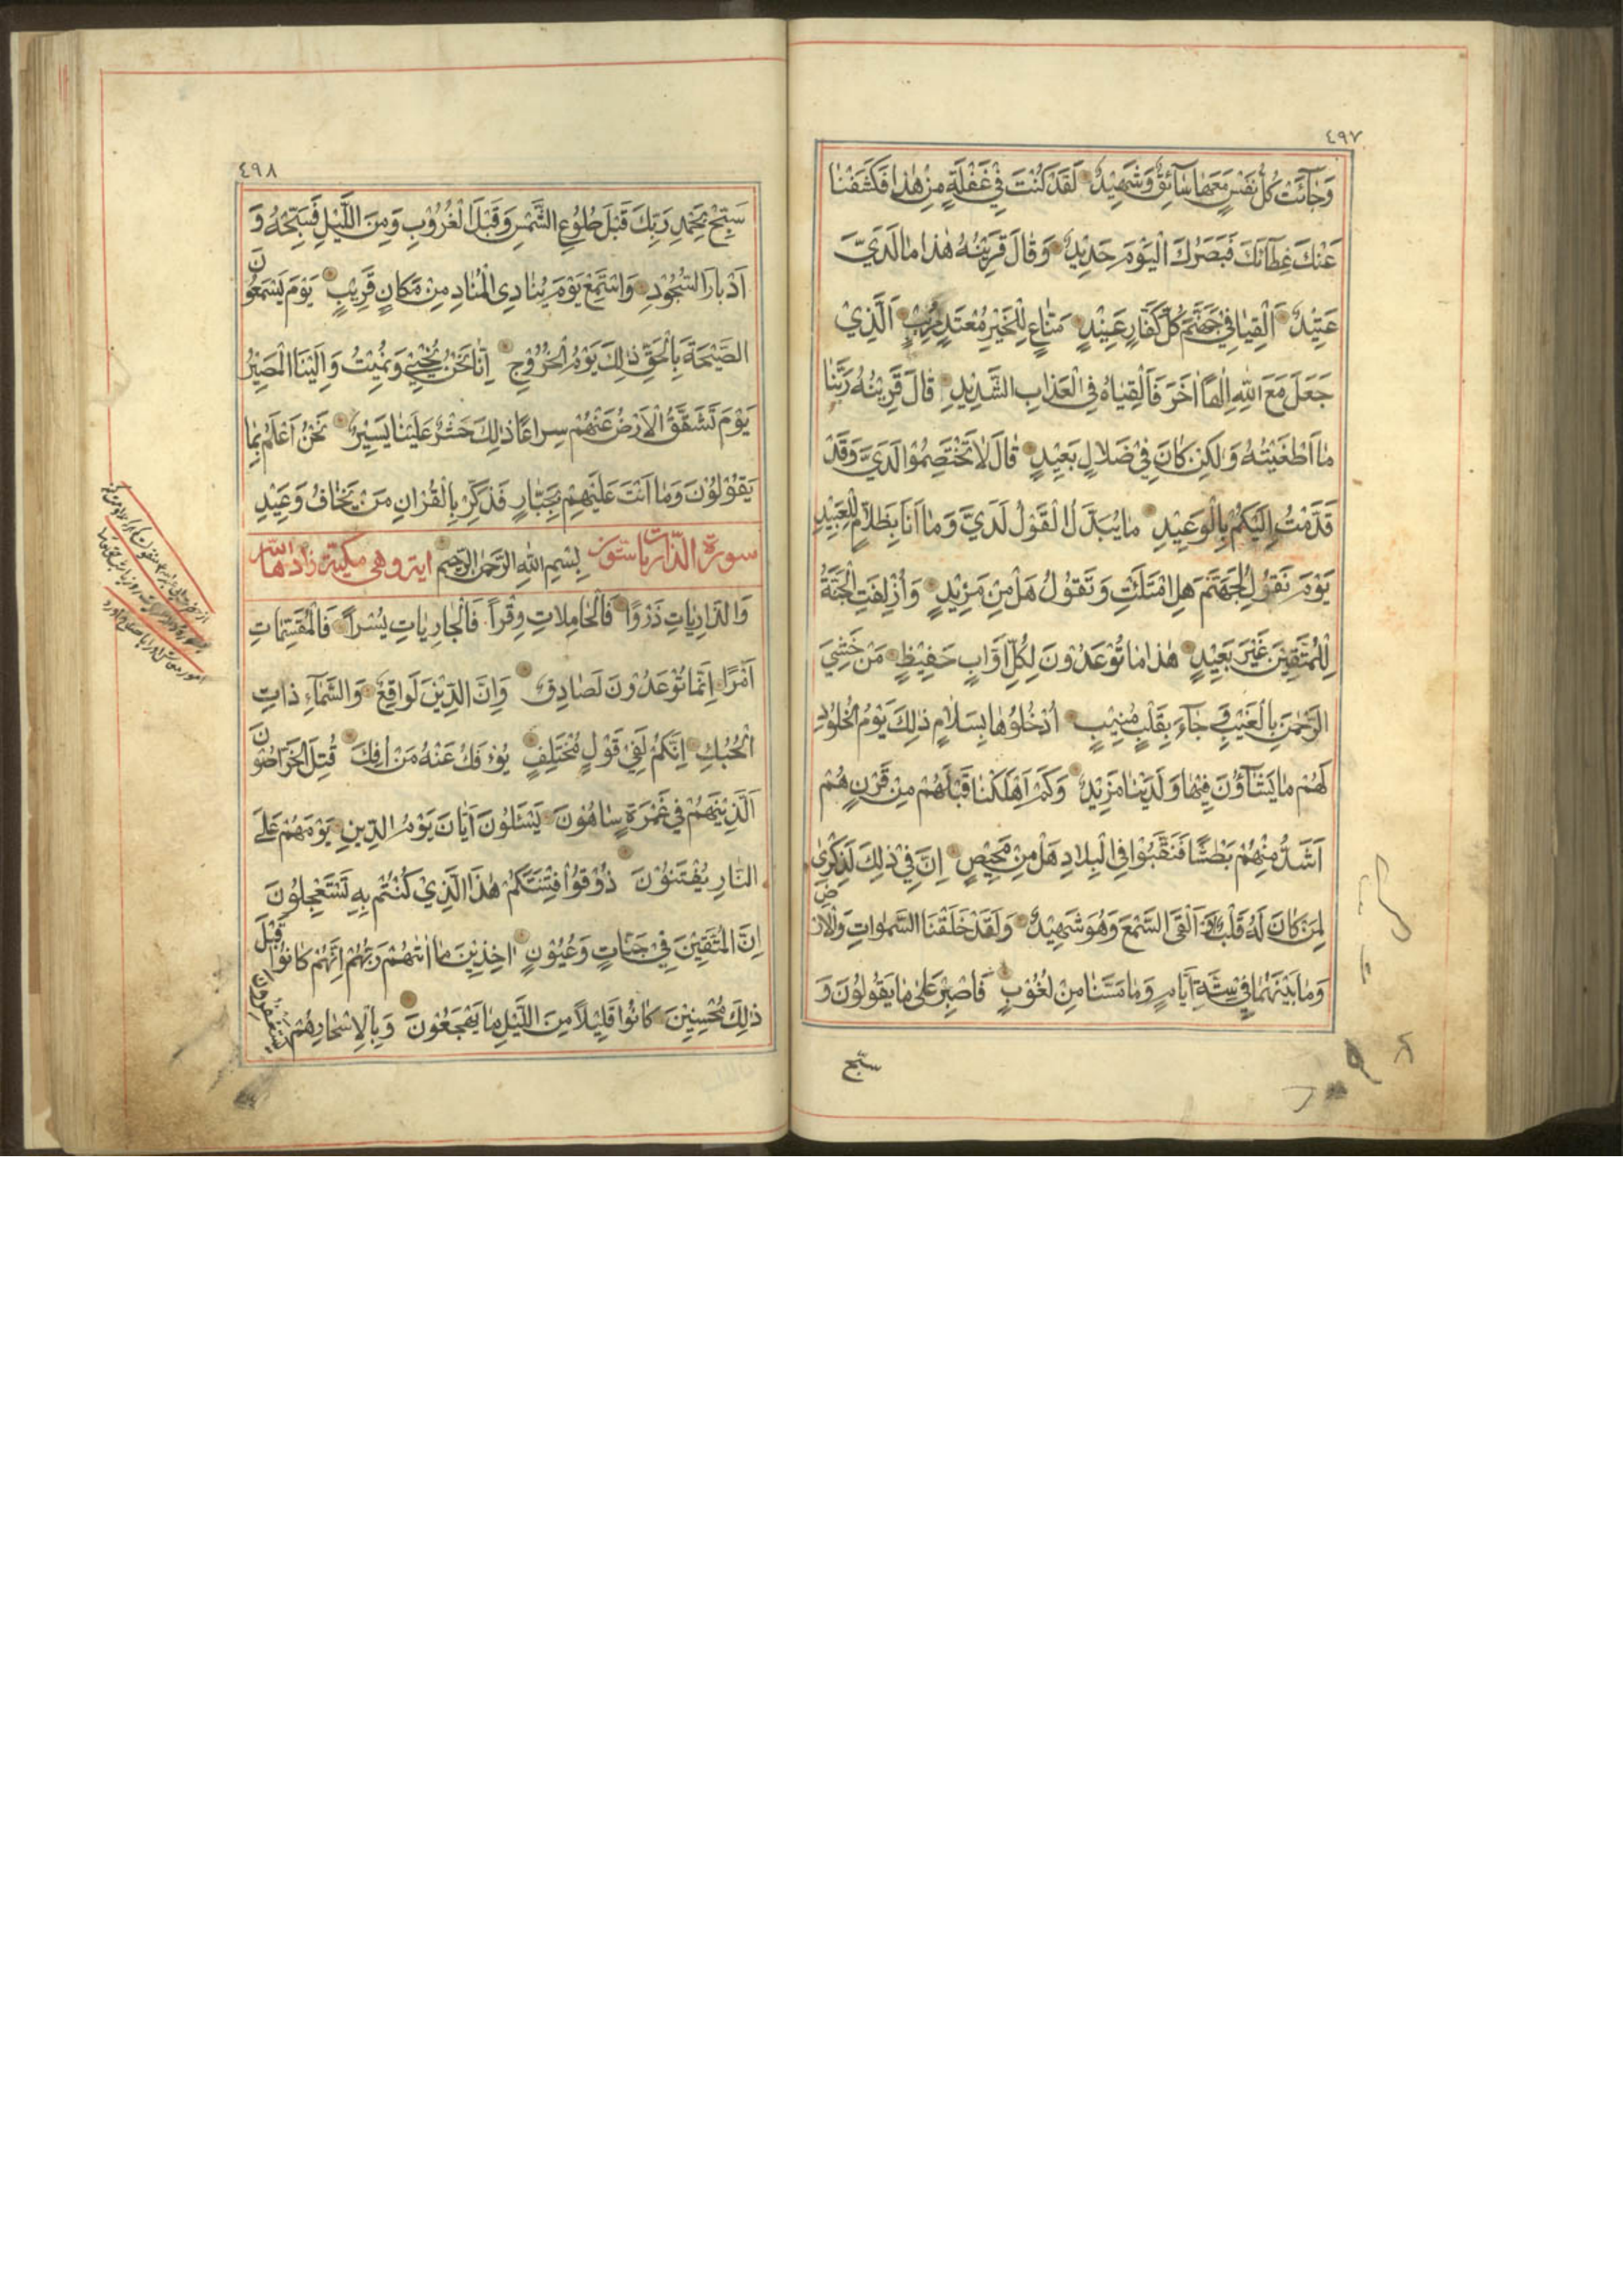 ٤٩٧
وَجٰآئَتْ كُلُّ نَفْسٍ مَعَهٰا سٰآئِقٌ وَشَهِيْدٌ لَقَدْ كُنْتَ فِيْ غَفْلَةٍ مِنْ هٰذٰا فَكَشَفْنٰا
عَنْكَ غِطٰآئَكَ فَبَصَرُكَ الْيَوْمَ حَدِيْدٌ وَقٰالَ قَرِيْنُهُ هٰذٰا مٰا لَدَيَّ
عَتِيْدٌ اَلْقِيٰا فِيْ جَهَنَّمَ كُلَّ كَفّٰارٍ عَنِيْدٍ مَنّٰاعٍ لِلْخَيْرِ مُعْتَدٍ مُرِيْبٍ اَلَّذِيْ
جَعَلَ مَعَ اللّٰهِ اِلٰهًا اٰخَرَ فَاَلْقِيٰاهُ فِي الْعَذٰابِ الشَّدِيْدِ قٰالَ قَرِيْنُهُ رَبَّنٰا
مٰا اَطْغَيْتُهُ وَلٰكِنْ كٰانَ فِيْ ضَلٰالٍ بَعِيْدٍ قٰالَ لٰا تَخْتَصِمُوْا لَدَيَّ وَقَدْ
قَدَّمْتُ اِلَيْكُمْ بِالْوَعِيْدِ مٰا يُبَدَّلُ الْقَوْلُ لَدَيَّ وَمٰا اَنَا بِظَلّٰامٍ لِلْعَبِيْدِ
يَوْمَ نَقُوْلُ لِجَهَنَّمَ هَلِ امْتَلَئْتِ وَتَقُوْلُ هَلْ مِنْ مَزِيْدٍ وَاُزْلِفَتِ الْجَنَّةُ
لِلْمُتَّقِيْنَ غَيْرَ بَعِيْدٍ هٰذٰا مٰا تُوْعَدُوْنَ لِكُلِّ اَوّٰابٍ حَفِيْظٍ مَنْ خَشِيَ
الرَّحْمٰنَ بِالْغَيْبِ وَ جٰآءَ بِقَلْبٍ مُنِيْبٍ اُدْخُلُوْهٰا بِسَلٰامٍ ذٰلِكَ يَوْمُ الْخُلُوْدِ
لَهُمْ مٰا يَشٰآؤُنَ فِيْهٰا وَلَدَيْنٰا مَزِيْدٌ وَكَمْ اَهْلَكْنٰا قَبْلَهُمْ مِنْ قَرْنٍ هُمْ
اَشَدُّ مِنْهُمْ بَطْشًا فَنَقَّبُوْا فِي الْبِلٰادِ هَلْ مِنْ مَحِيْصٍ اِنَّ فِيْ ذٰلِكَ لَذِكْرىٰ
لِمَنْ كٰانَ لَهُ قَلْبٌ اَوْ اَلْقَى السَّمْعَ وَهُوَ شَهِيْدٌ وَلَقَدْ خَلَقْنَا السَّمٰوٰاتِ وَالْاَرْضَ
وَمٰا بَيْنَهُمٰا فِيْ سِتَّةِ اَيّٰامٍ وَمٰا مَسَّنٰا مِنْ لُغُوْبٍ فَاصْبِرْ عَلىٰ مٰا يَقُوْلُوْنَ وَ
سبّح
٤٩٨
سَبِّحْ بِحَمْدِ رَبِّكَ قَبْلَ طُلُوْعِ الشَّمْسِ وَقَبْلَ الْغُرُوْبِ وَمِنَ اللَّيْلِ فَسَبِّحْهُ وَ
اَدْبٰارَ السُّجُوْدِ وَاسْتَمِعْ يَوْمَ يُنٰادِي الْمُنٰادِ مِنْ مَكٰانٍ قَرِيْبٍ يَوْمَ يَسْمَعُوْنَ
الصَّيْحَةَ بِالْحَقِّ ذٰلِكَ يَوْمُ الْخُرُوْجِ اِنّٰا نَحْنُ نُحْيِيْ وَنُمِيْتُ وَاِلَيْنَا الْمَصِيْرُ
يَوْمَ تَشَقَّقُ الْاَرْضُ عَنْهُمْ سِرٰاعًا ذٰلِكَ حَشْرٌ عَلَيْنٰا يَسِيْرٌ نَحْنُ اَعْلَمُ بِمٰا
يَقُوْلُوْنَ وَمٰا اَنْتَ عَلَيْهِمْ بِجَبّٰارٍ فَذَكِّرْ بِالْقُرْاٰنِ مَنْ يَخٰافُ وَعِيْدِ
سورة الذّاريات ستون بِسْمِ اللّٰهِ الرَّحْمٰنِ الرَّحِيْمِ اية وهي مكية زادها اللّٰه
وَالذّٰارِيٰاتِ ذَرْوًا فَالْحٰامِلٰاتِ وِقْرًا فَالْجٰارِيٰاتِ يُسْرًا فَالْمُقَسِّمٰاتِ
اَمْرًا اِنَّمٰا تُوْعَدُوْنَ لَصٰادِقٌ وَاِنَّ الدِّيْنَ لَوٰاقِعٌ وَالسَّمٰآءِ ذٰاتِ
الْحُبُكِ اِنَّكُمْ لَفِيْ قَوْلٍ مُخْتَلِفٍ يُؤْفَكُ عَنْهُ مَنْ اُفِكَ قُتِلَ الْخَرّٰاصُوْنَ
اَلَّذِيْنَ هُمْ فِيْ غَمْرَةٍ سٰاهُوْنَ يَسْئَلُوْنَ اَيّٰانَ يَوْمُ الدِّيْنِ يَوْمَ هُمْ عَلَى
النّٰارِ يُفْتَنُوْنَ ذُوْقُوْا فِتْنَتَكُمْ هٰذَا الَّذِيْ كُنْتُمْ بِهِ تَسْتَعْجِلُوْنَ
اِنَّ الْمُتَّقِيْنَ فِيْ جَنّٰاتٍ وَعُيُوْنٍ اٰخِذِيْنَ مٰا اٰتٰهُمْ رَبُّهُمْ اِنَّهُمْ كٰانُوْا قَبْلَ
ذٰلِكَ مُحْسِنِيْنَ كٰانُوْا قَلِيْلًا مِنَ اللَّيْلِ مٰا يَهْجَعُوْنَ وَبِالْاَسْحٰارِ هُمْ يَسْتَغْفِرُوْنَ